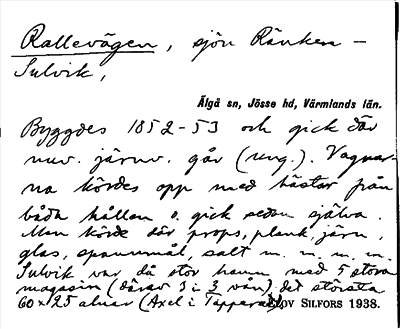 Rallevägen, sjön Ränken –
Sulvik,
Älgå sn, Jösse hd, Värmlands län.
Byggdes 1852-53 och gick där
nuv. järnv. går (ung.). Vagnar-
na kördes opp med hästar från
båda hållen o. gick sedan själva.
Man körde där props, plank, järn,
glas, spannmål, salt m. m. m. m.
Sulvik var då stor hamn med 5 stora
magasin (därav 3 i 3 vån.) det största
60 x 25 alnar (Axel i Tapparud)
ELOV SILFORS 1938.